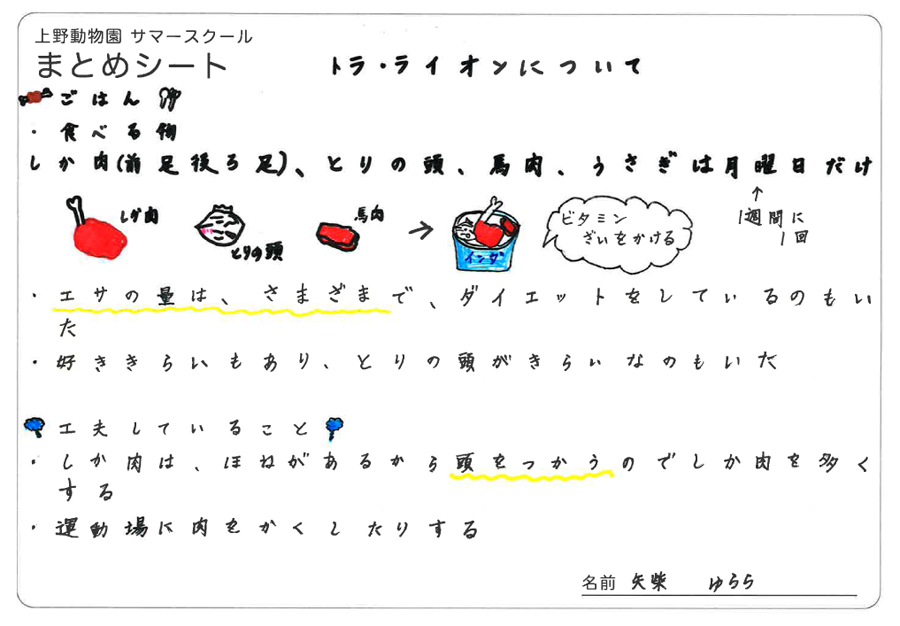 上野動物園 サマースクール
まとめシート
トラ・ライオンについて
ごはん
・食べる物
しか肉(前足後ろ足)、とりの頭、馬肉、うさぎは月曜日だけ
↑
1週間に
1回
しか肉
とりの頭
馬肉
→
インダ
ビタミン
ざいをかける
・エサの量は、さまざまで、ダイエットをしているのもい
た
・好ききらいもあり、とりの頭がきらいなのもいた
工夫していること
・しか肉は、ほねがあるから頭をつかうのでしか肉を多く
する
・運動場に肉をかくしたりする
名前 矢柴 ゆらら